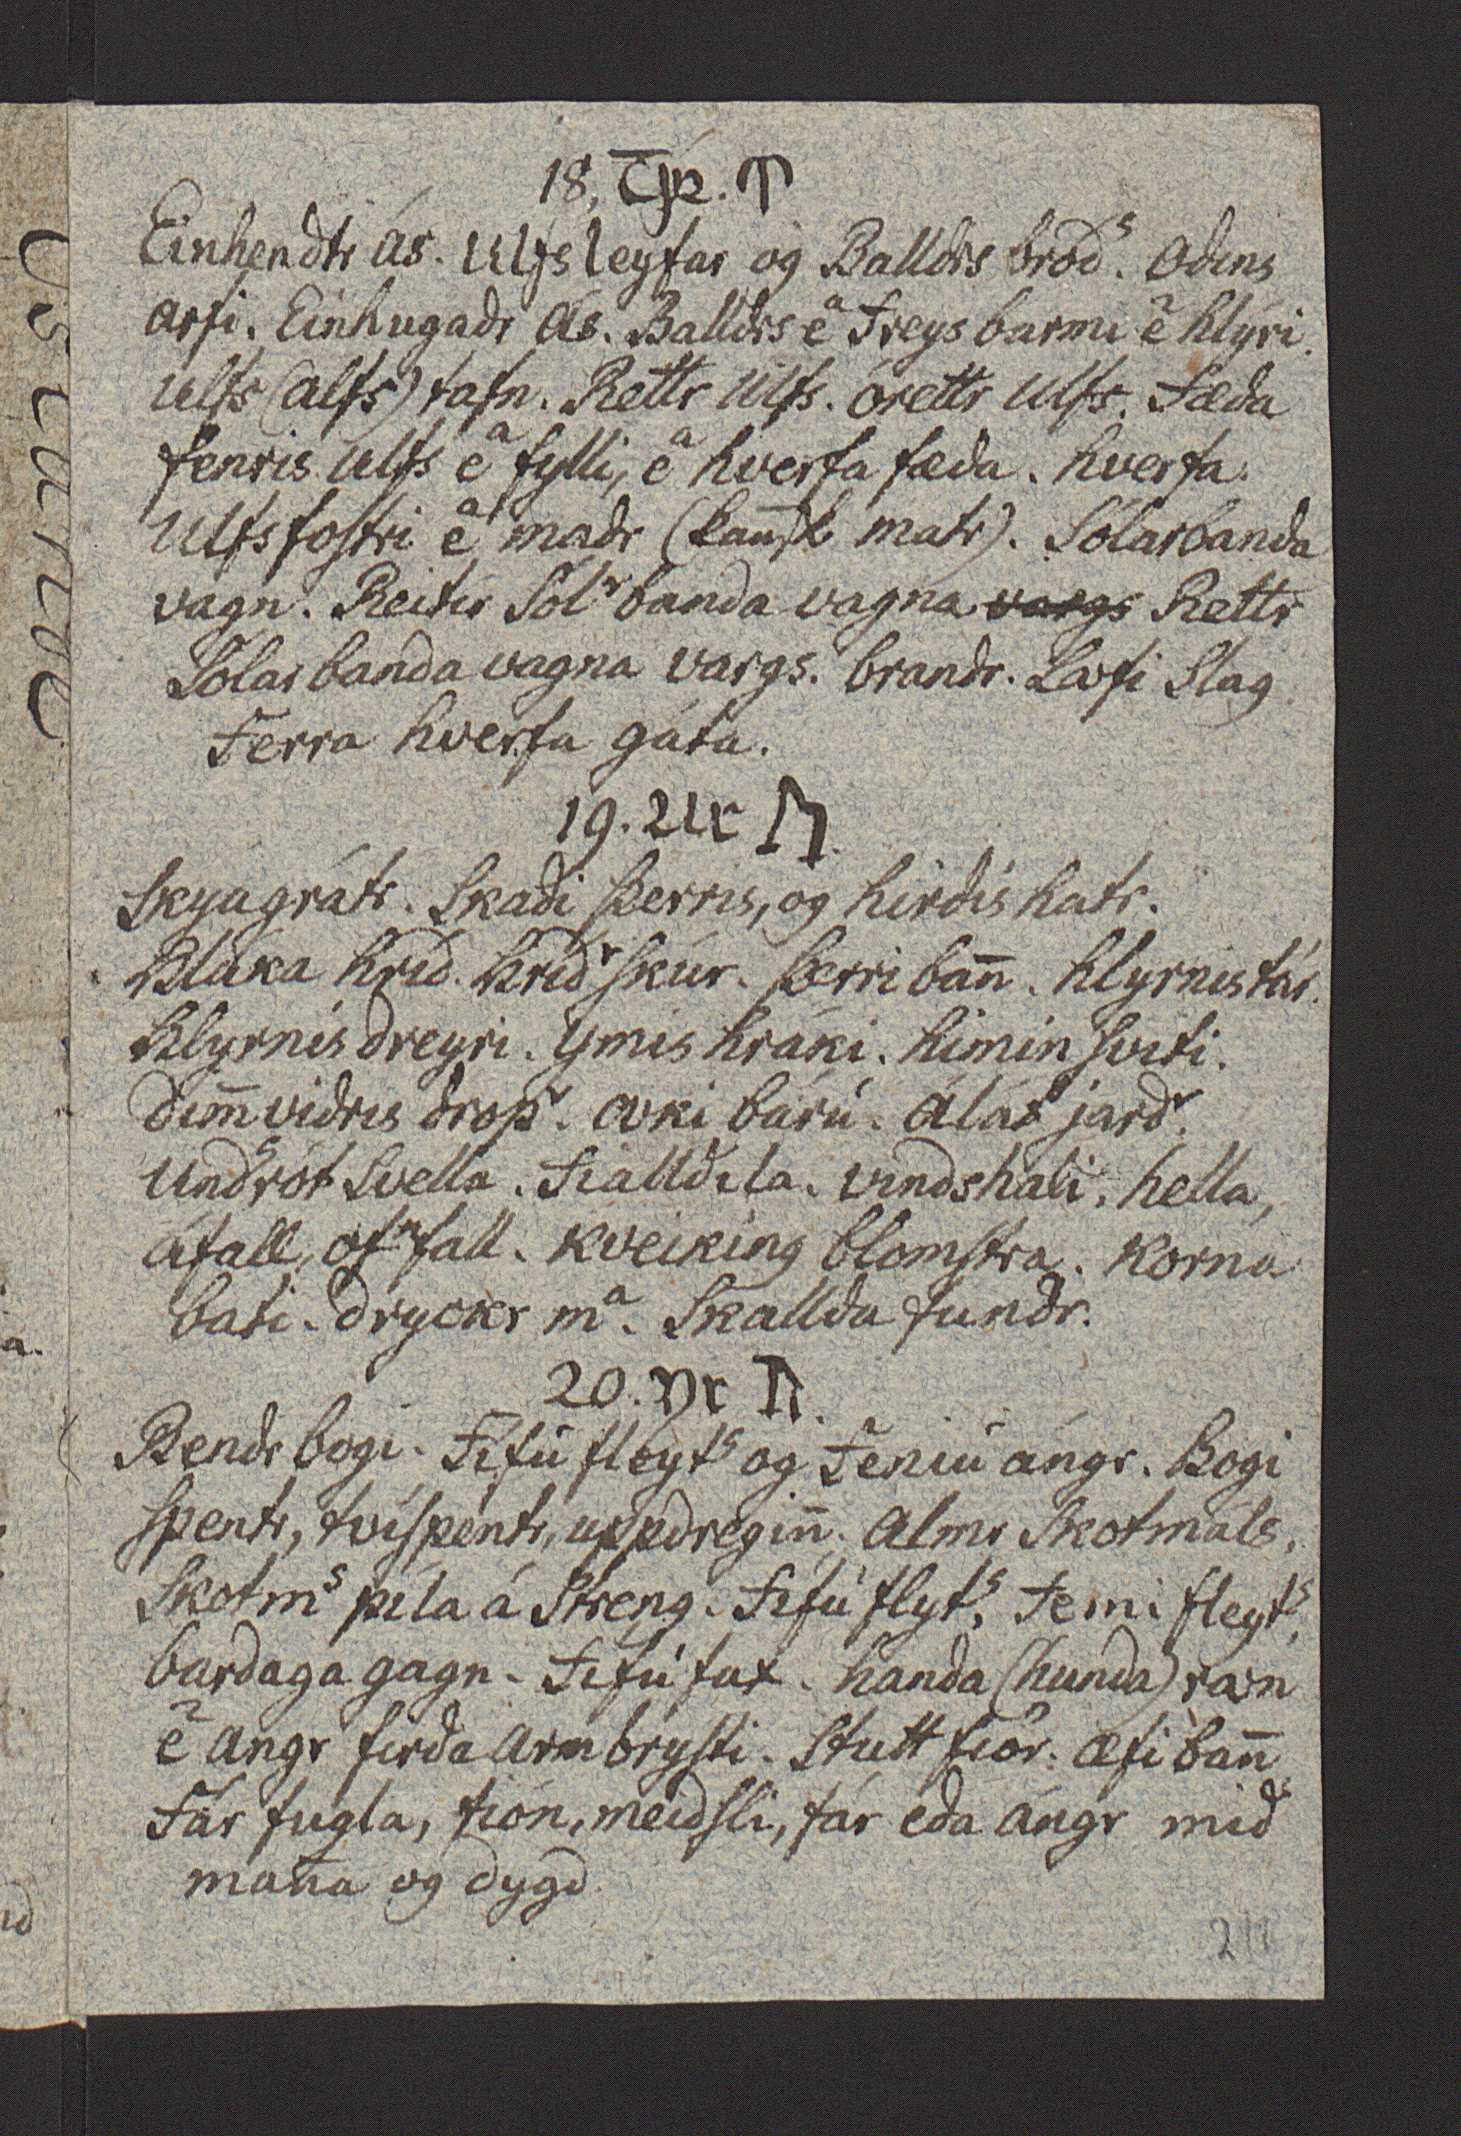 18. Týr. ᛏ
Einhendtr ás. Ulfs leyfar og Balldrs brodˢ. Odins
arfi. Einhugadr Ás. Balldrs eᵃ Freys barmi eᵃ hlýri.
Ulfs (alfs) tafn. Rettr Ulfs. órettr Ulfs. Fæda
fenris Ulfs eᵃ fylli, eᵃ hverfa fæda. hverfa
Ulfs fostri eᵃ madr (kañsk matr). Sólarbanda
vagn. Reitir Solʳ banda vagna vargs Rettr
Solar banda vagna vargs. brandr. Lævi Slag
Ferra hverfa gáta.
19. Ur ᚢ
Skyagrátr. Skadi þerris, og hirdis hatr.
Blaka hrid. hridʳ skúr. þerri bañ. hlyrnis tár.
hlyrnis dreyri. Ymis hráki. himin sviti.
dim̄ vidris dropʳ. avki báru. álas jardʳ.
Undˢrót Svella. Fialldila. vindshali, hella,
áfall, ofⁿfall. Kveiking blomstra. Korna
bati. dryckr mᵃ. Skallda fundr.
20. Yr
Bendr bogi. Fifu fleytˢ og Feniu ángr. Bogi
spentr, tvíspentr, uppdregiñ. Almr Skotmáls,
Skotmˢ píla á Streng. Fifu flytˢ, Femi fleytˢ,
bardaga gagn. Fifu fax. handa (hunda) ræn
eᵃ Angr firda Armbrysti. Stutt fiör. æfi bañ
Fár fugla, tión, meidsli, fár eda ángr mid
maña og dygd